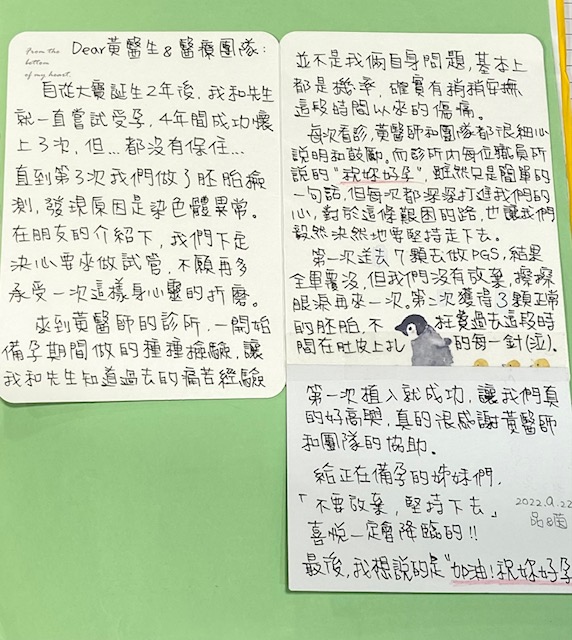 From the
bottom
of my heart
Dear黃醫生&醫療團隊:
自從大寶誕生2年後,我和先生
就一直嘗試受孕,4年間成功懷
上3次,但…都沒有保住…
直到第3次我們做了胚胎檢
測,發現原因是染色體異常。
在朋友的介紹下,我們下定
決心要來做試管,不願再多
承受一次這樣身心靈的折磨。
來到黃醫師的診所,一開始
備孕期間做的種種檢驗,讓
我和先生知道過去的痛苦經驗
並不是我倆自身問題,基本上
都是機率,確實有稍稍安撫
這段時間以來的傷痛。
每次看診,黃醫師和團隊都很細心
說明和鼓勵。而診所內每位職員所
說的"祝妳好孕",雖然只是簡單的
一句話,但每次都深深打進我們的
心,對於這條艱困的路,也讓我們
毅然決然地要堅持走下去。
第一次送去7顆去做PGS,結果
全軍覆沒,但我們沒有放棄,擦擦
眼淚再來一次。第二次獲得3顆正常
的胚胎,不枉費過去這段時
間在肚皮上扎的每一針(泣).
第一次植入就成功,讓我們真
的好高興,真的很感謝黃醫師
和團隊的協助。
給正在備孕的姊妹們,
「不要放棄,堅持下去」
喜悅一定會降臨的!!
2022.9.22
最後,我想說的是"加油!祝妳好孕